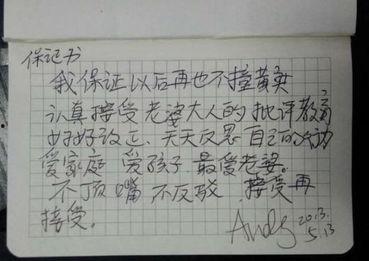 保证书
我保证以后再也不撞黄
认真接受老婆大人的批评教育
好好改正、天天反思自己的
爱家庭 爱孩子 最爱老婆。
不顶嘴 不反驳 接受再
接受。
Andy 2013.
5.13